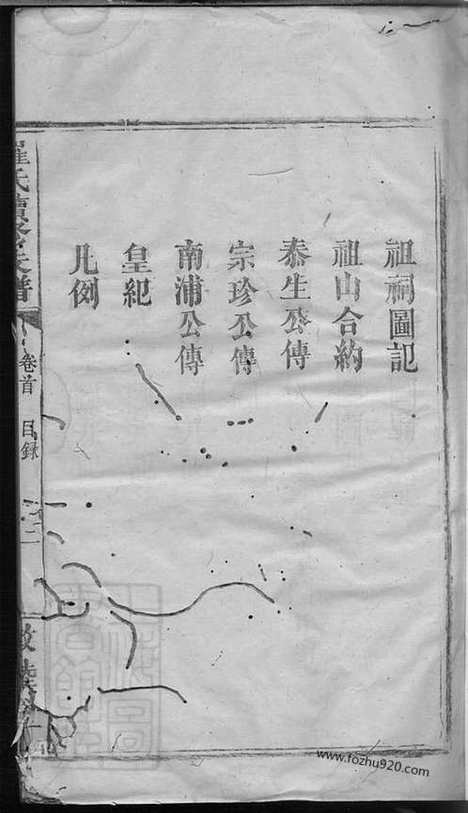 祖祠圖記
祖山合約
泰生公傳
宗珍公傳
南浦公傳
皇紀
凡例
氏續修支譜
卷首 目錄
敦睦
www.fozhu920.com